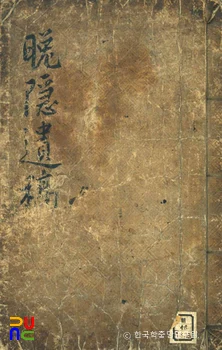 晚隱遺稿
ⓒ 한국학중앙연구원